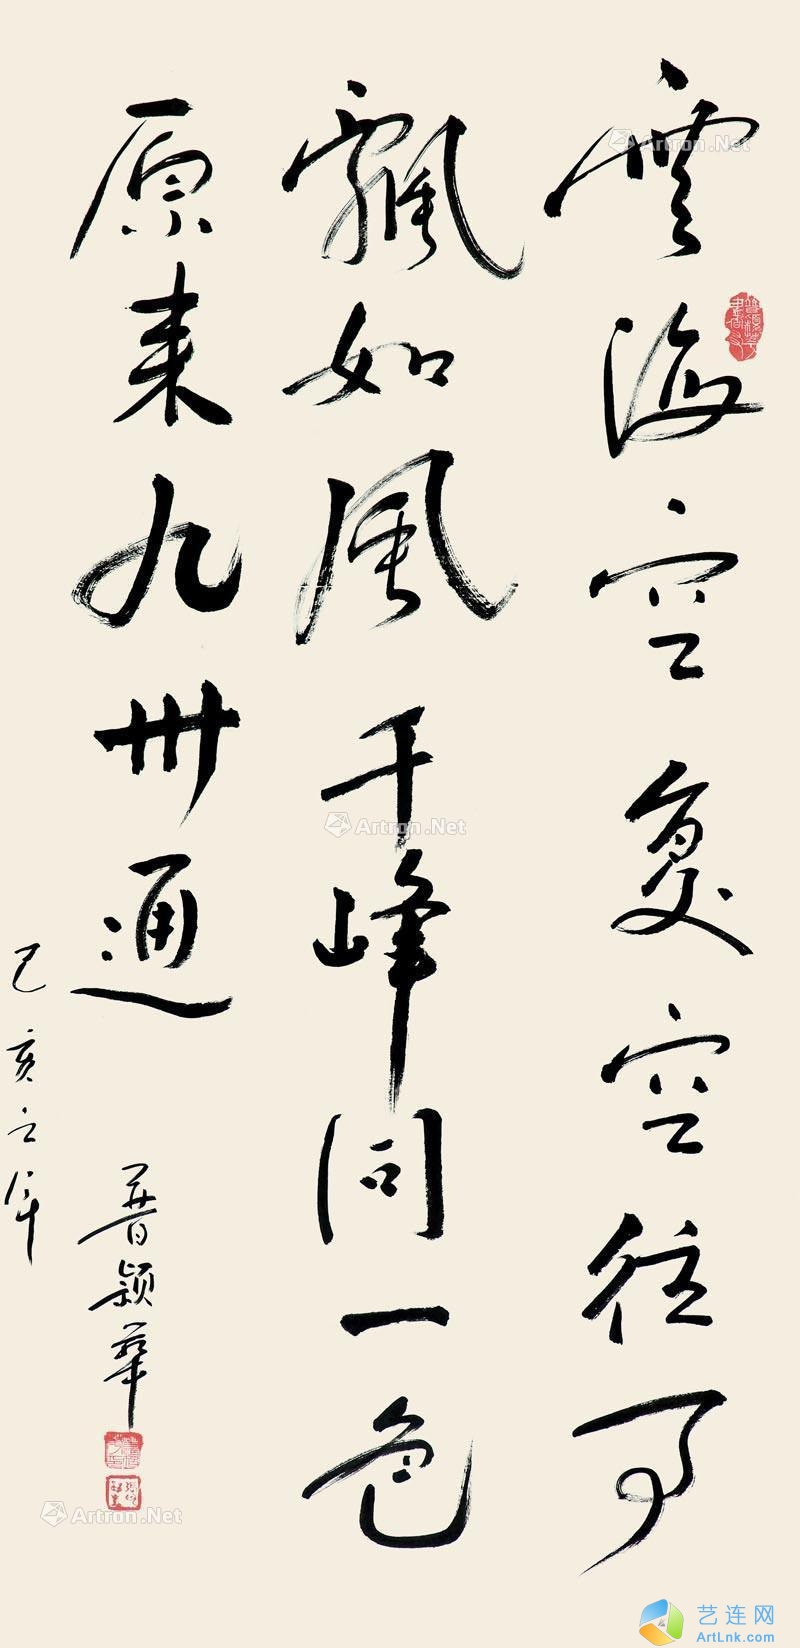 雲海空復空往事
飄如風千峰同一色
原来九州通
己亥之年
普颖華
Artron.Net
Artron.Net
Artron.Net
艺连网
ArtLnk.com